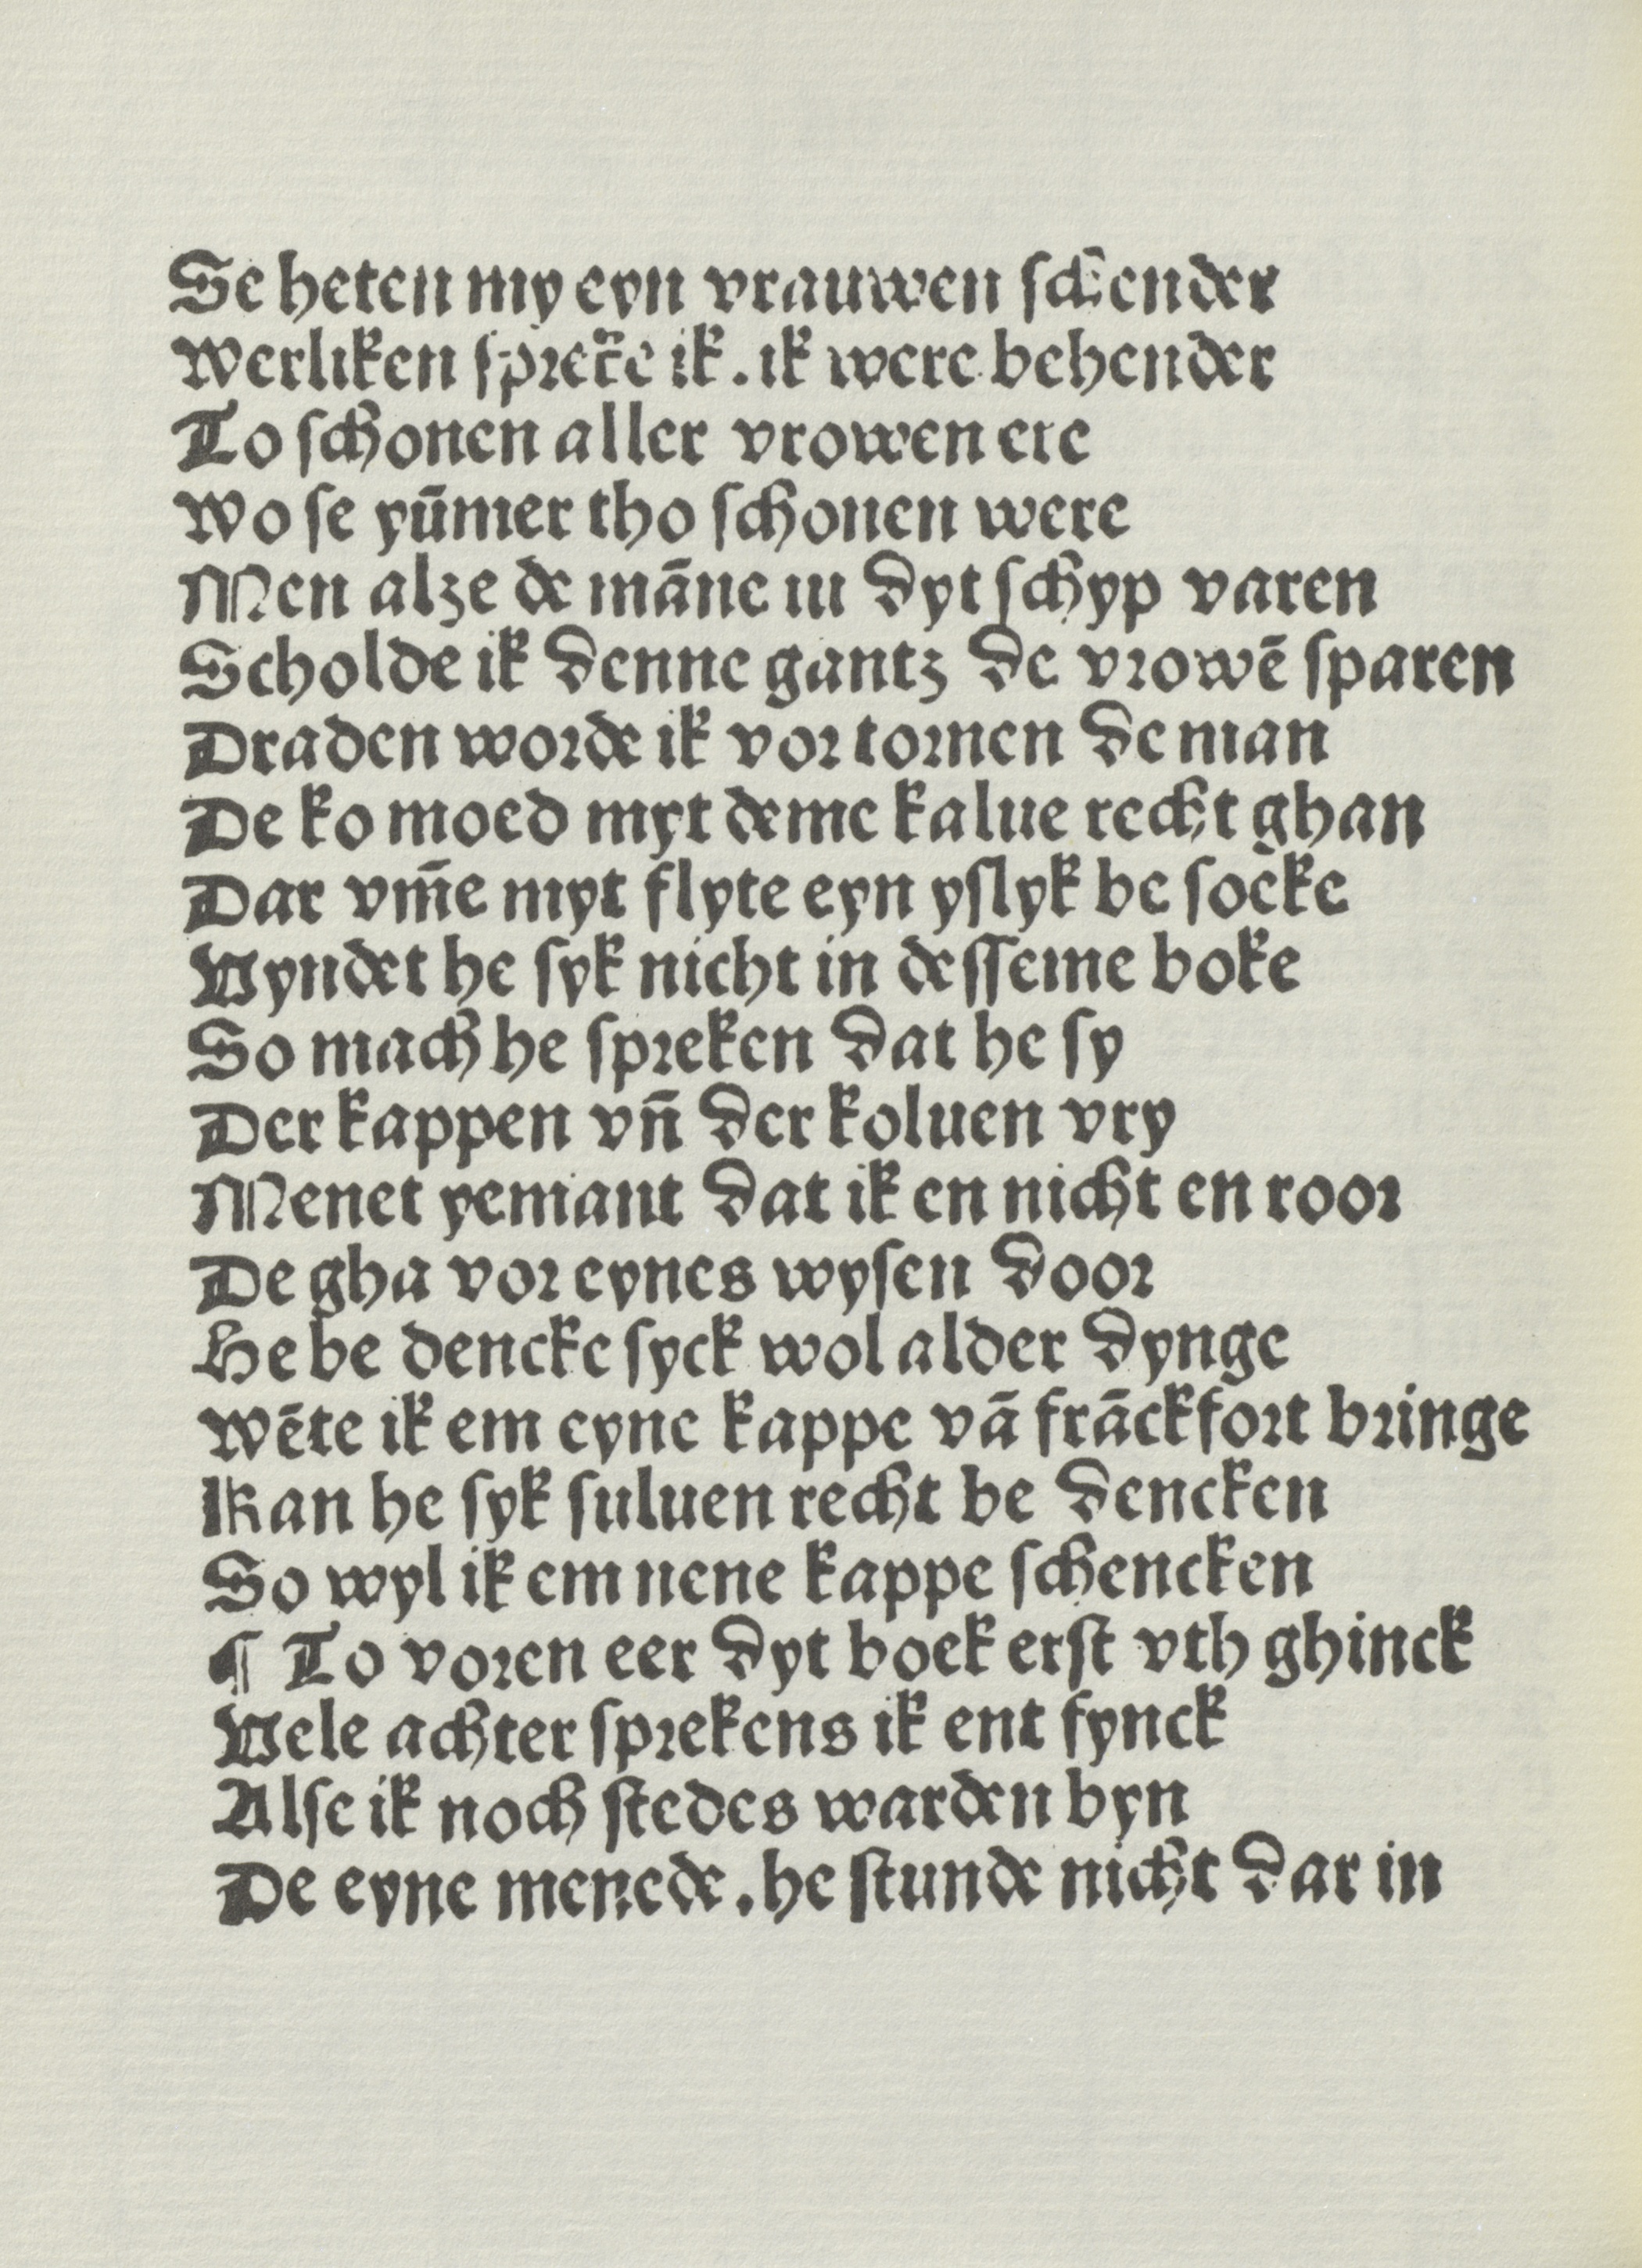 Se heten my eyn vrauwen ſchender
Werliken ſpreke ik . ik were behender
To ſchonen aller vrowen ere
Wo ſe yūmer tho ſchonen were
Men alze de māne in dyt ſchyp varen
Scholde ik denne gantz de vrowē ſparen
Draden worde ik vor tornen de man
De ko moed myt deme kalue recht ghan
Dar vm̄e myt flyte eyn yſlyk be ſoeke
Vyndet he ſyk nicht in deſſeme boke
So mach he ſpreken dat he ſy
Der kappen vn̄ der koluen vry
Menet yemant dat ik en nicht en roor
De gha vor eynes wyſen door
He be dencke ſyck wol alder dynge
Wēte ik em eyne kappe vā frāckfort bringe
Kan he ſyk ſuluen recht be dencken
So wyl ik em nene kappe ſchencken
¶ To voren eer dyt boek erſt vth ghinck
Vele achter ſprekens ik ent fynck
Alſe ik noch ſtedes warden byn
De eyne menede . he ſtunde nicht dar in